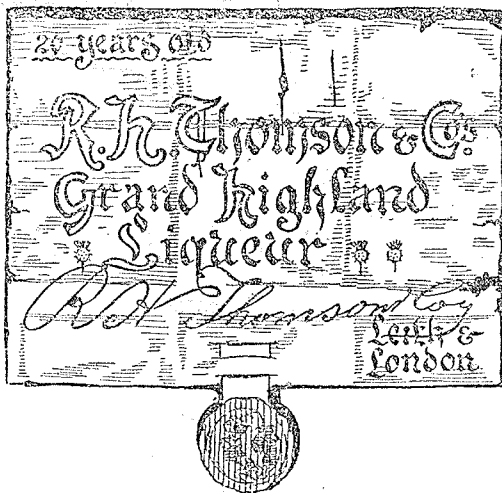 20 years old
R. H. Thomson & Cos.
Grand Highland
Liqueur
R H Thomson & Coy
Leith &
London